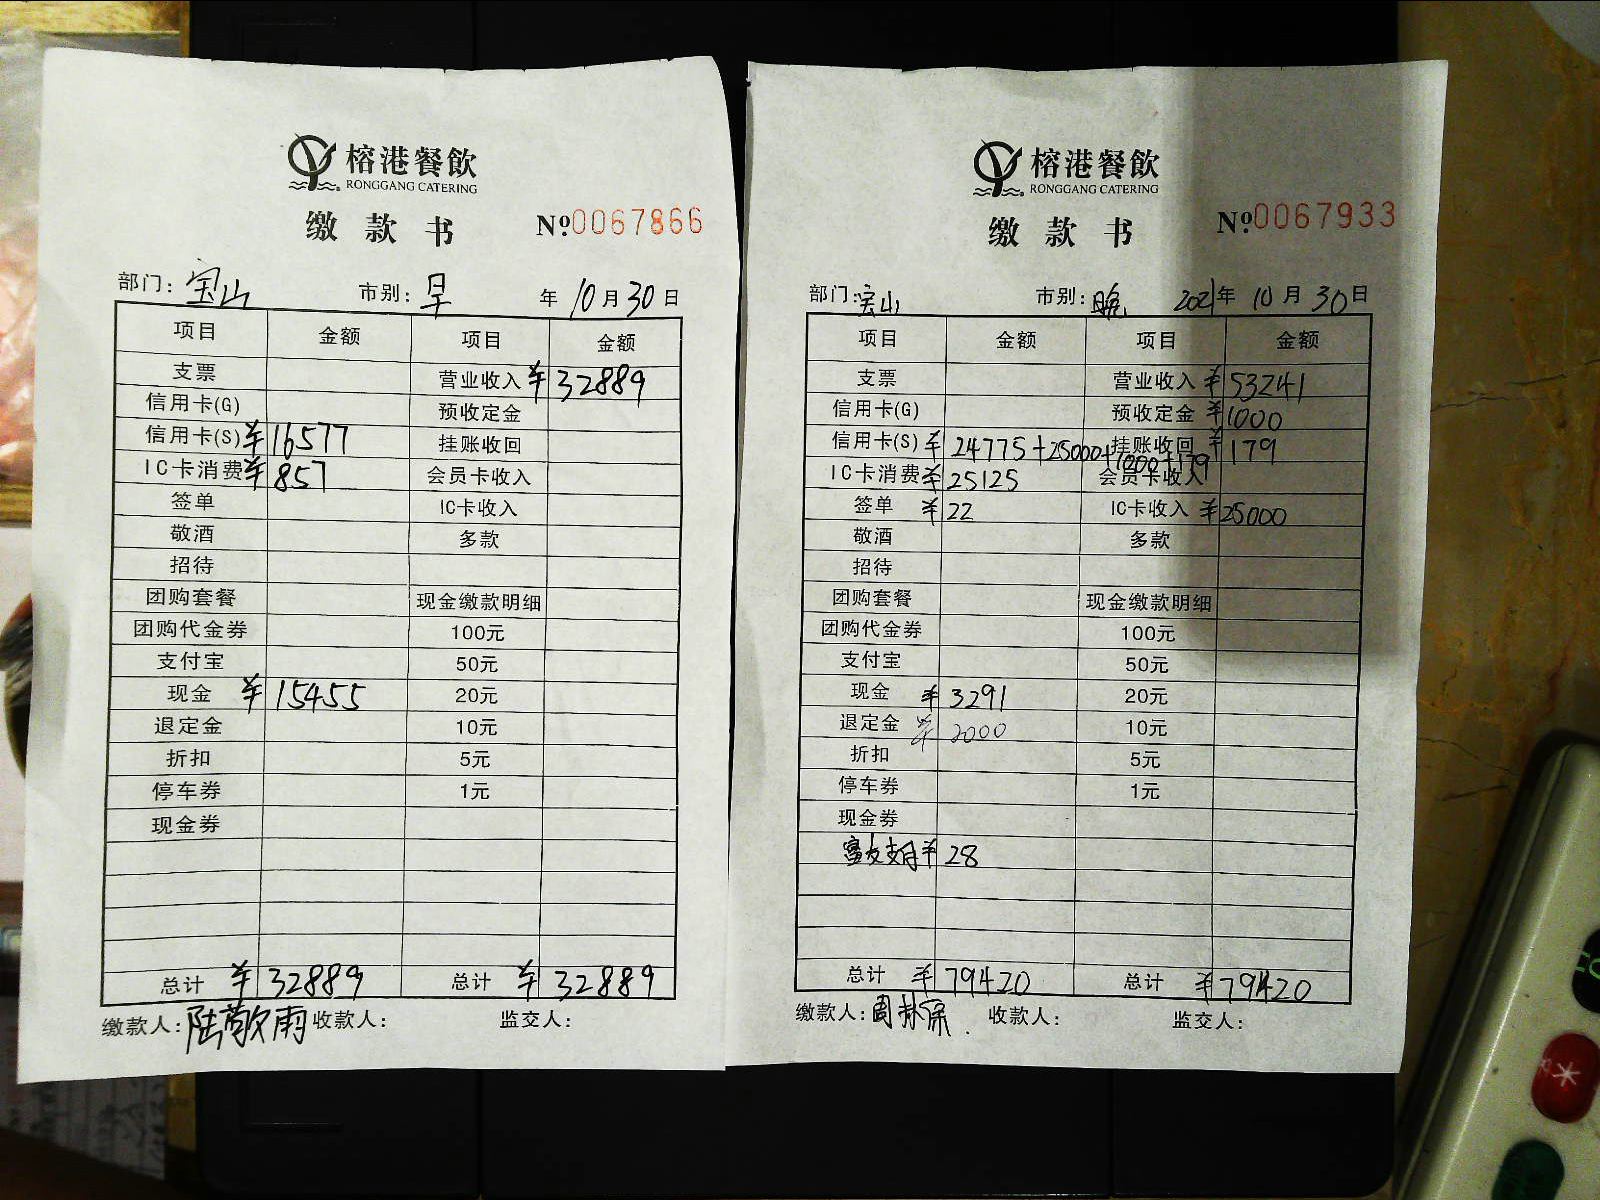 榕港餐飲
RONGGANG CATERING
缴款书 №0067866
部门：宝山 市别：早 年10月30日
项目 金额 项目 金额
支票 营业收入 ¥32889
信用卡(G) 预收定金
信用卡(S) ¥16577 挂账收回
IC卡消费 ¥857 会员卡收入
签单 IC卡收入
敬酒 多款
招待
团购套餐 现金缴款明细
团购代金券 100元
支付宝 50元
现金 ¥15455 20元
退定金 10元
折扣 5元
停车券 1元
现金券
总计 ¥32889 总计 ¥32889
缴款人：陆敬雨 收款人： 监交人：
榕港餐飲
RONGGANG CATERING
缴款书 №0067933
部门：宝山 市别：晚 2021年10月30日
项目 金额 项目 金额
支票 营业收入 ¥53241
信用卡(G) 预收定金 ¥1000
信用卡(S) ¥24775+25000+1000+179 挂账收回 ¥179
IC卡消费 ¥25125 会员卡收入
签单 ¥22 IC卡收入 ¥25000
敬酒 多款
招待
团购套餐 现金缴款明细
团购代金券 100元
支付宝 50元
现金 ¥3291 20元
退定金 ¥2000 10元
折扣 5元
停车券 1元
现金券
¥28
总计 ¥79420 总计 ¥79420
缴款人：周 收款人： 监交人：